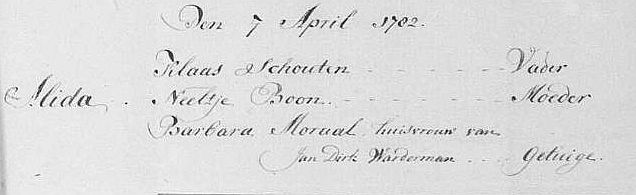 Den 7 April 1782.
Klaas Schouten - - - - - Vader
Alida. Neeltje Boon. - - - - - Moeder
Barbara Moraal, huisvrouw van
Jan Dirk Warderman . . . . Getuige.